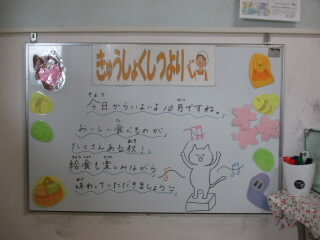 きゅうしょくしつより
今日からいよいよ10月ですね。
おいしい食べものが、
たくさんある秋!!
給食も楽しみながら
味わっていただきましょう